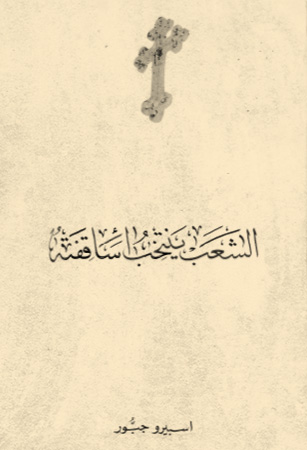 الشعب ينتخب أساقفته
اسبيرو جبور